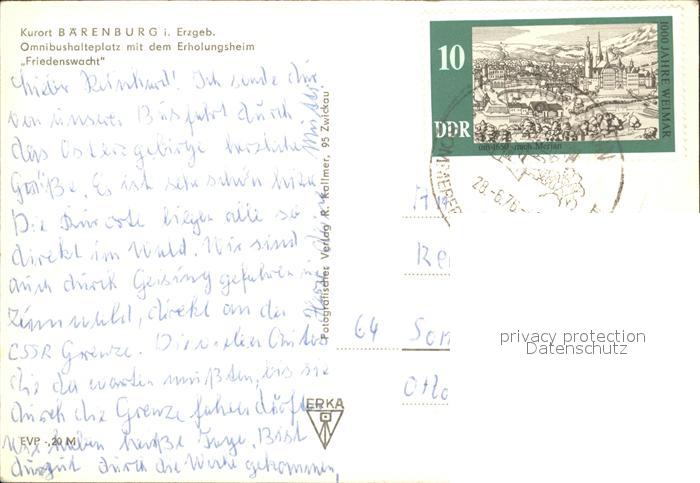 Kurort BÄRENBURG i. Erzgeb.
Omnibushalteplatz mit dem Erholungsheim
„Friedenswacht"
Lieber Reinhard! Ich sende dir
von unserer Busfahrt durch
das Osterzgebirge herzliche
Grüße. Es ist sehr schön hier.
Die Kurorte liegen alle so
direkt im Wald. Wir sind
auch durch Geising gefahren
Zinnwald, direkt an der
CSSR Grenze. Die vielen Autos
die da warten mußten, bis sie
durch die Grenze fahren durften
Wir haben heiße Tage. Bist
durch die Woche gekommen,
EVP -,20 M
Fotografischer Verlag R. Kallmer, 95 Zwickau
ERKA
10
DDR
um 1650 · nach Merian
1000 JAHRE WEIMAR
28.-6.76
64 Son
Otto
privacy protection
Datenschutz